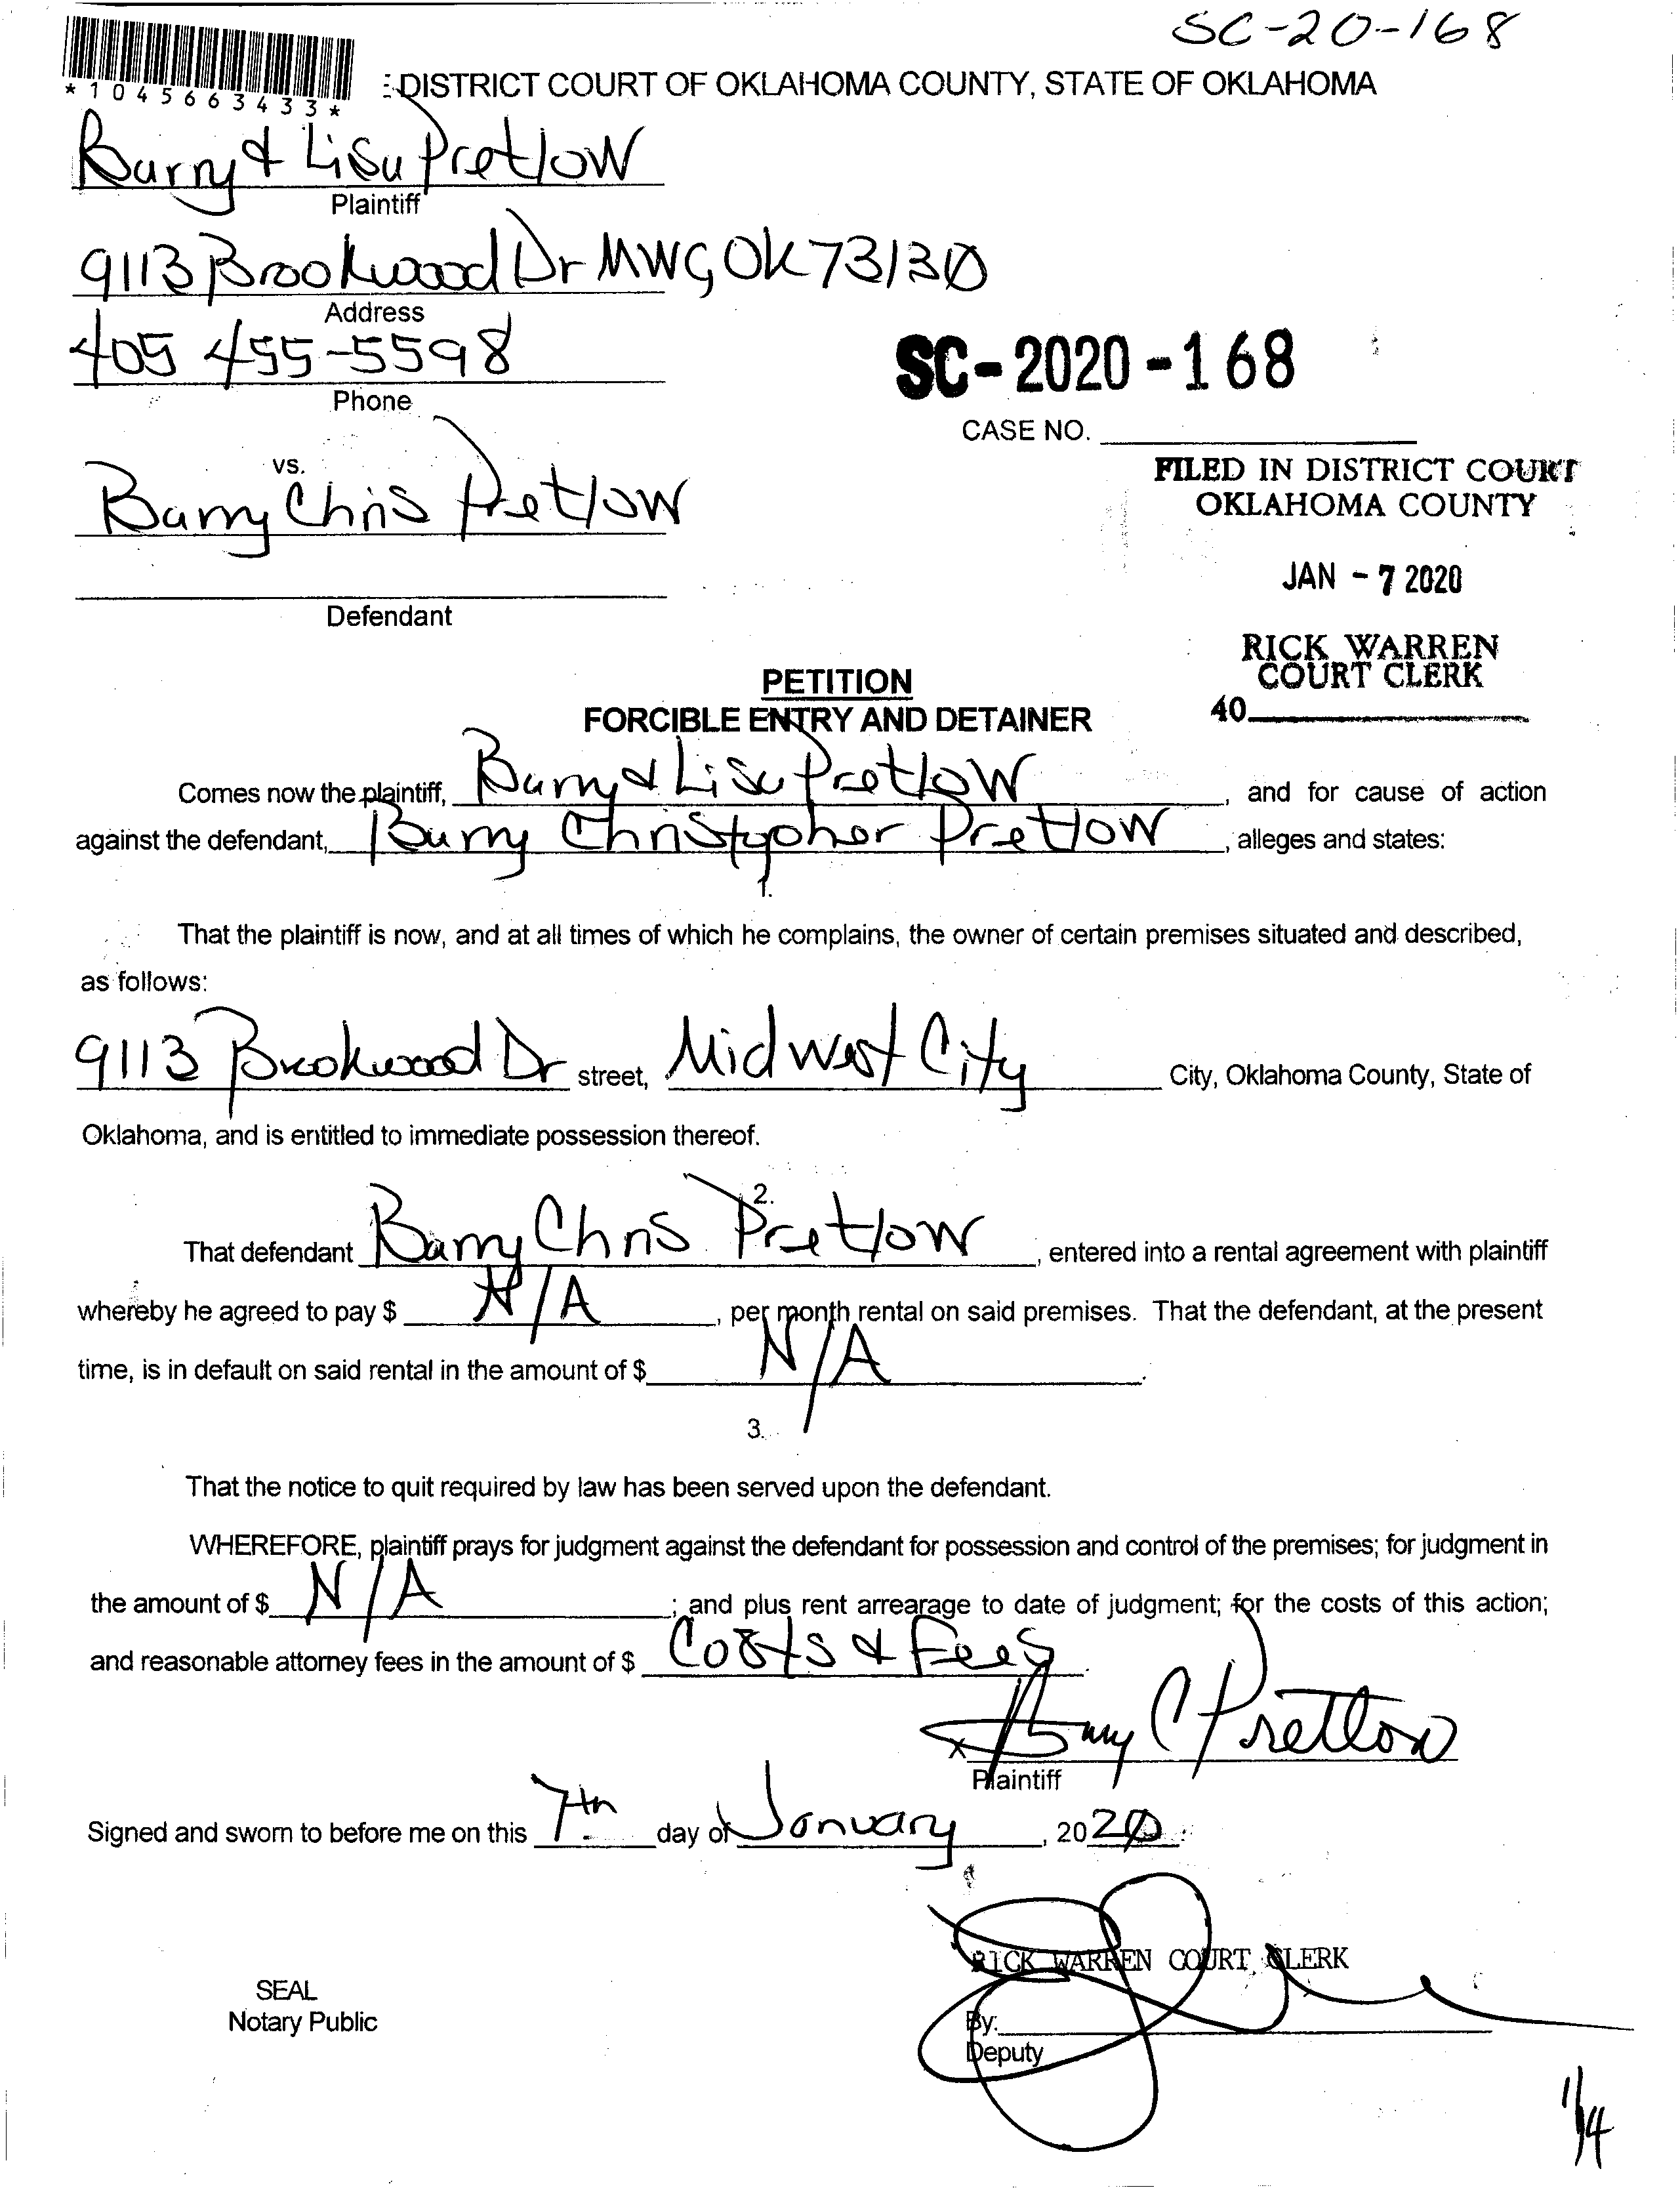 SC-20-168
*1045663433*
DISTRICT COURT OF OKLAHOMA COUNTY, STATE OF OKLAHOMA
Barry & Lisa Pretlow
Plaintiff
9113 Brookwood Dr MWC, OK 73130
Address
405 455-5598
Phone
SC-2020-168
CASE NO.
vs.
FILED IN DISTRICT COURT
OKLAHOMA COUNTY
Barry Chris Pretlow
JAN - 7 2020
Defendant
RICK WARREN
COURT CLERK
40
PETITION
FORCIBLE ENTRY AND DETAINER
Comes now the plaintiff, Barry & Lisa Pretlow, and for cause of action
against the defendant, Barry Christopher Pretlow, alleges and states:
1.
That the plaintiff is now, and at all times of which he complains, the owner of certain premises situated and described,
as follows:
9113 Brookwood Dr street, Midwest City City, Oklahoma County, State of
Oklahoma, and is entitled to immediate possession thereof.
2.
That defendant Barry Chris Pretlow, entered into a rental agreement with plaintiff
whereby he agreed to pay $ N/A, per month rental on said premises. That the defendant, at the present
time, is in default on said rental in the amount of $ N/A.
3.
That the notice to quit required by law has been served upon the defendant.
WHEREFORE, plaintiff prays for judgment against the defendant for possession and control of the premises; for judgment in
the amount of $ N/A; and plus rent arrearage to date of judgment; for the costs of this action;
and reasonable attorney fees in the amount of $ Costs & Fees.
x Barry C Pretlow
Plaintiff
Signed and sworn to before me on this 7th day of January, 2020
RICK WARREN COURT CLERK
SEAL
Notary Public
By:
Deputy
1/14